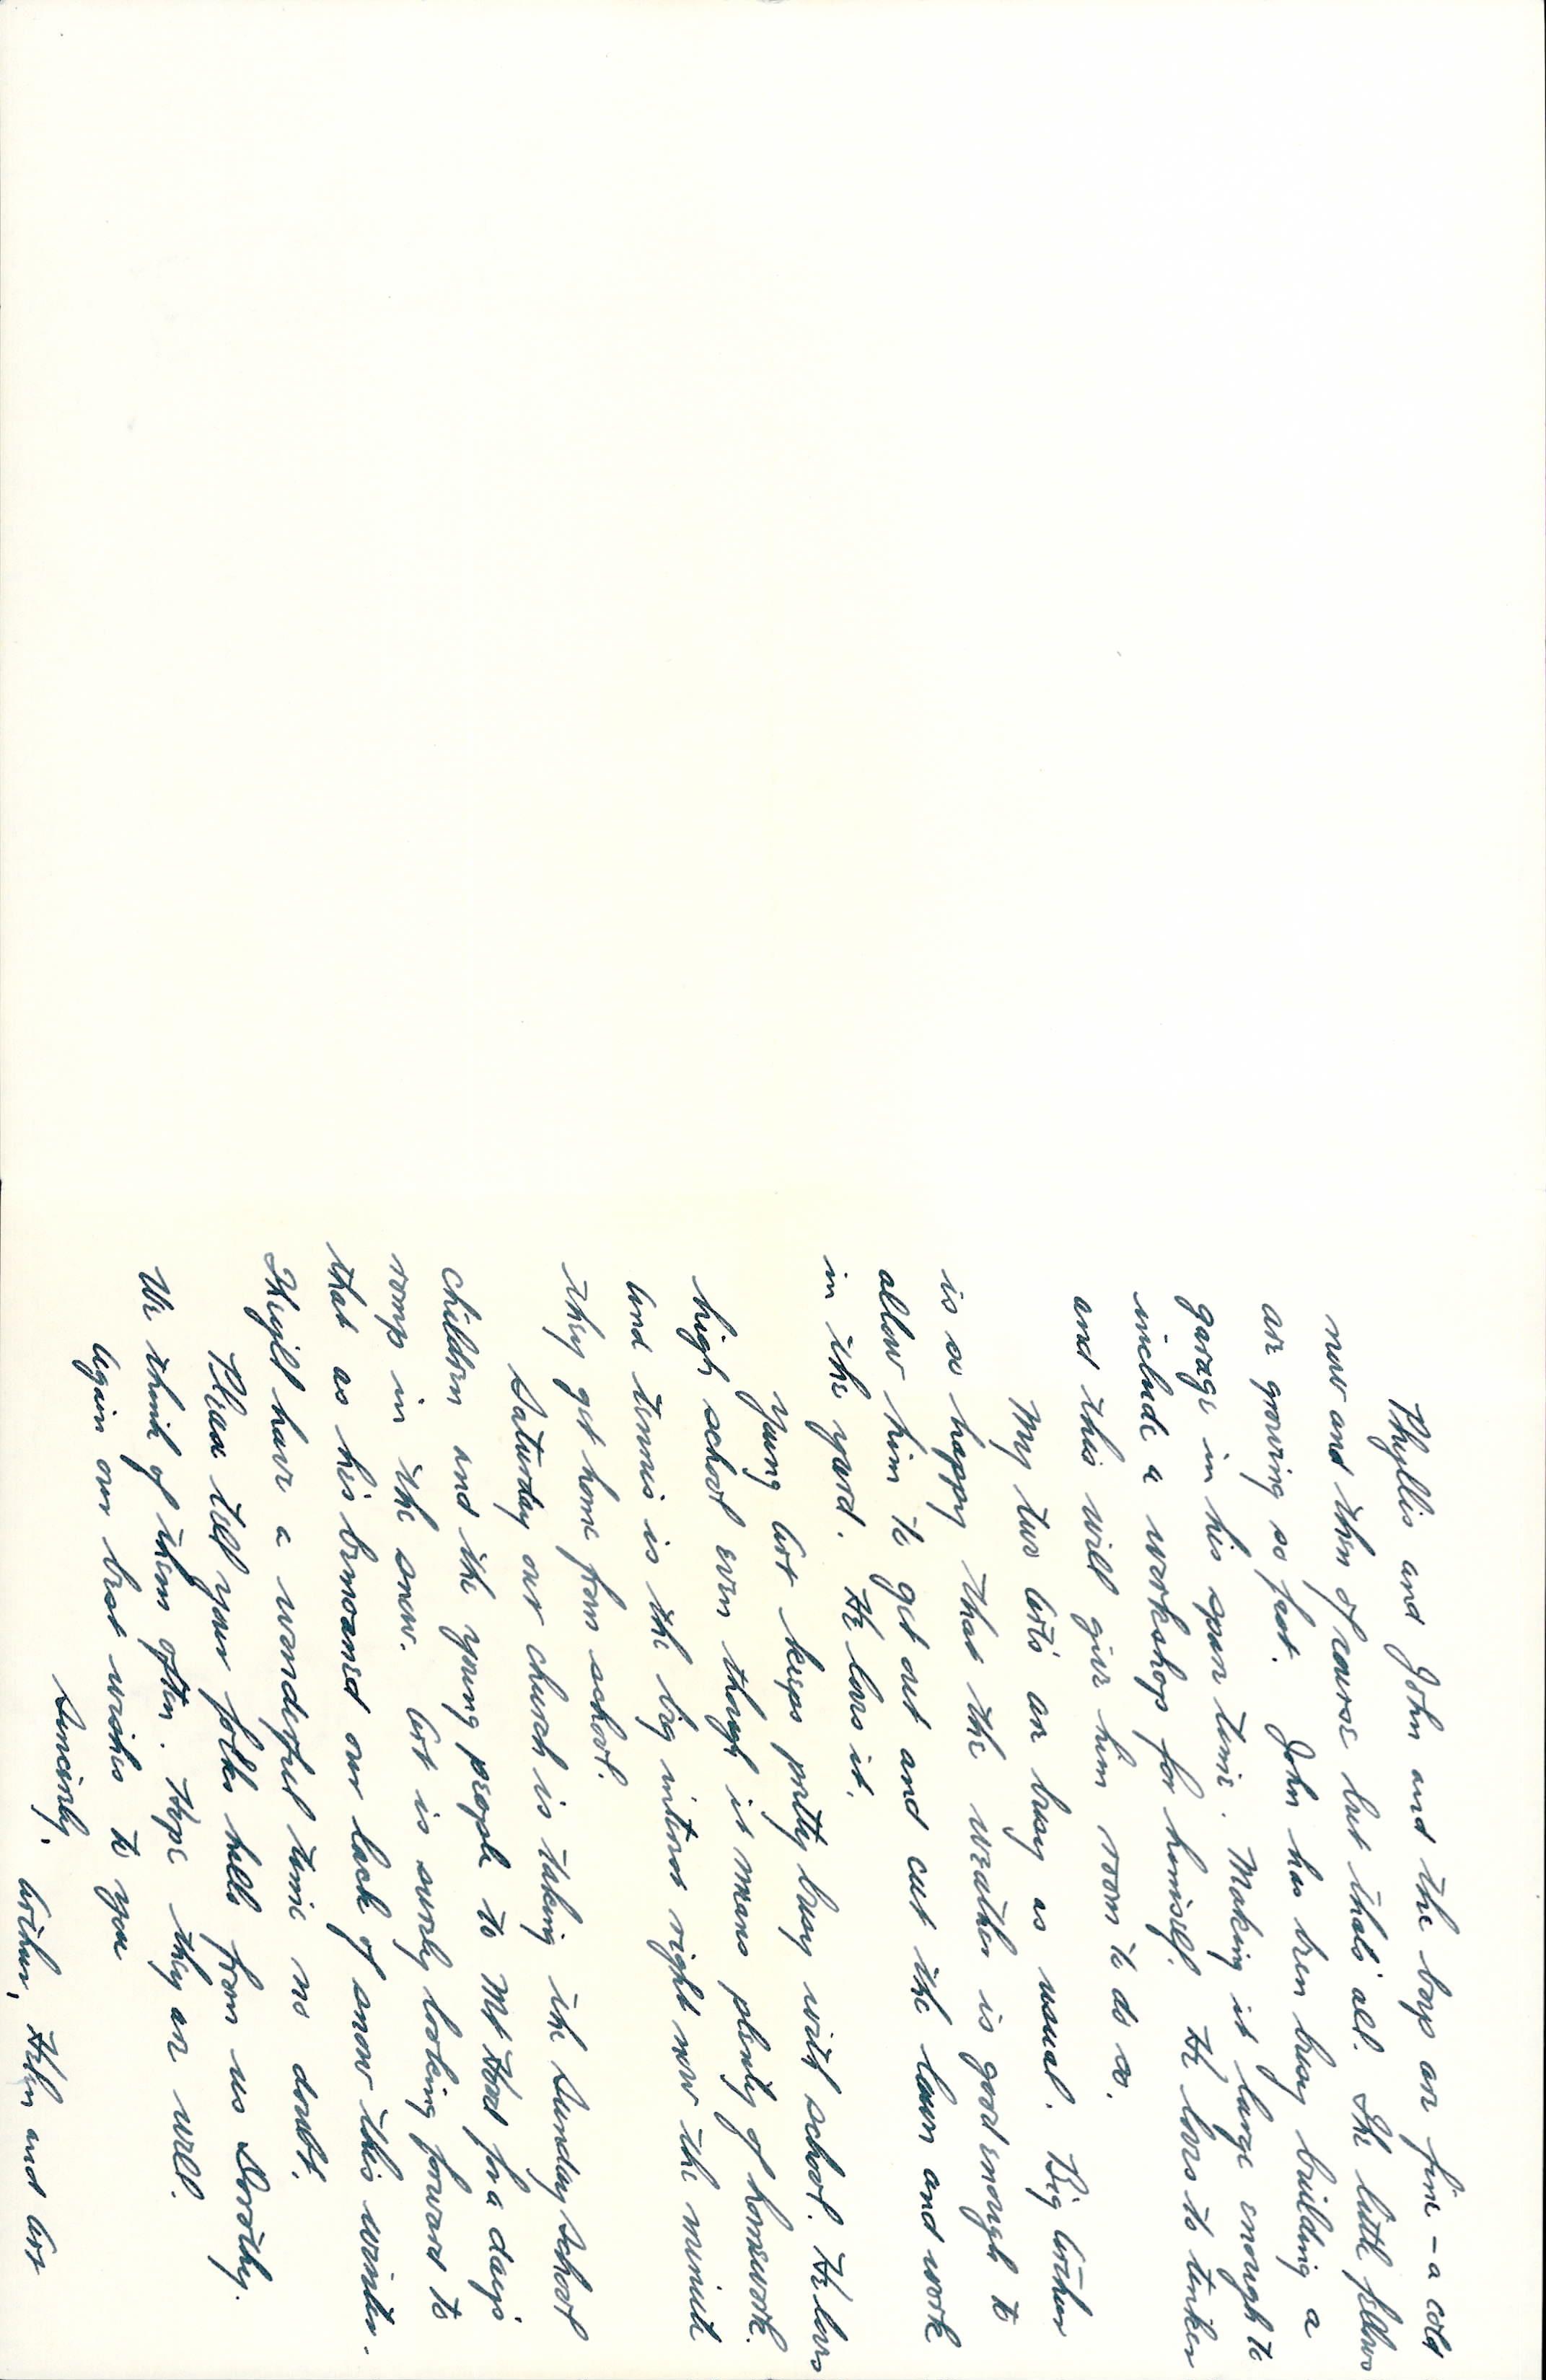 Phyllis and John and the boys are fine - a cold
now and then of course but thats' all. The little fellows
are growing so fast. John has been busy building a
garage in his spare time. Making it large enough to
include a workshop for himself. He loves to tinker
and this will give him room to do so.
My two Art's are busy as usual. Big Arthur
is so happy that the weather is good enough to
allow him to get out and cut the lawn and work
in the yard. He loves it.
Young Art keeps pretty busy with school. He loves
high school even though it means plenty of homework.
And tennis is the big interest right now the minute
they get home from school.
Saturday our church is taking the Sunday School
children and the young people to Mt Hood for a days
romp in the snow. Art is surely looking forward to
that as his bemoaned our lack of snow this winter.
They'll have a wonderful time no doubt.
Please tell your folks hello from us Dorothy.
We think of them often. Hope they are well.
Again our best wishes to you
Sincerely,
Arthur, Helen and Art